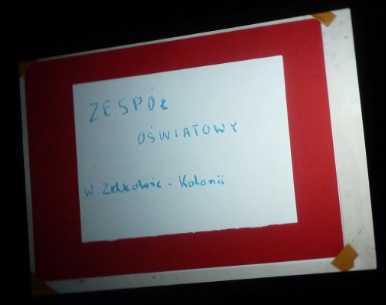 ZESPÓŁ
OŚWIATOWY
W Żelkowie - Kolonii